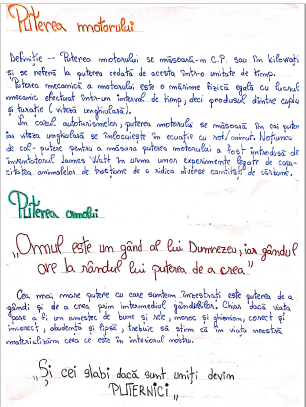 Puterea motorului
Definiție - Puterea motorului se măsoară-n C.P. sau în kilowați
și se referă la puterea cedată de acesta într-o unitate de timp.
Puterea mecanică a motorului este o mărime fizică egală cu lucrul
mecanic efectuat într-un interval de timp, deci produsul dintre cuplu
și turație (viteză unghiulară).
În cazul autoturismelor, puterea motorului se măsoară în cai putere
iar viteza unghiulară se înlocuiește în ecuație cu rot/minut. Noțiunea
de cal-putere pentru a măsura puterea motorului a fost introdusă de
inventatorul James Watt în urma unor experimente legate de capa-
citatea animalelor de tracțiune de a ridica diverse cantități de cărbune.
Puterea omului
„Omul este un gând al lui Dumnezeu, iar gândul
are la rândul lui puterea de a crea."
Cea mai mare putere cu care suntem înzestrați este puterea de a
gândi și de a crea prin intermediul gândurilor. Chiar dacă viața
pare a fi un amestec de bune și rele, noroc și ghinion, corect și
incorect, abudență și lipsă, trebuie să știm că în viața noastră
materializăm ceea ce este în interiorul nostru.
„Și cei slabi dacă sunt uniți devin
PUTERNICI„